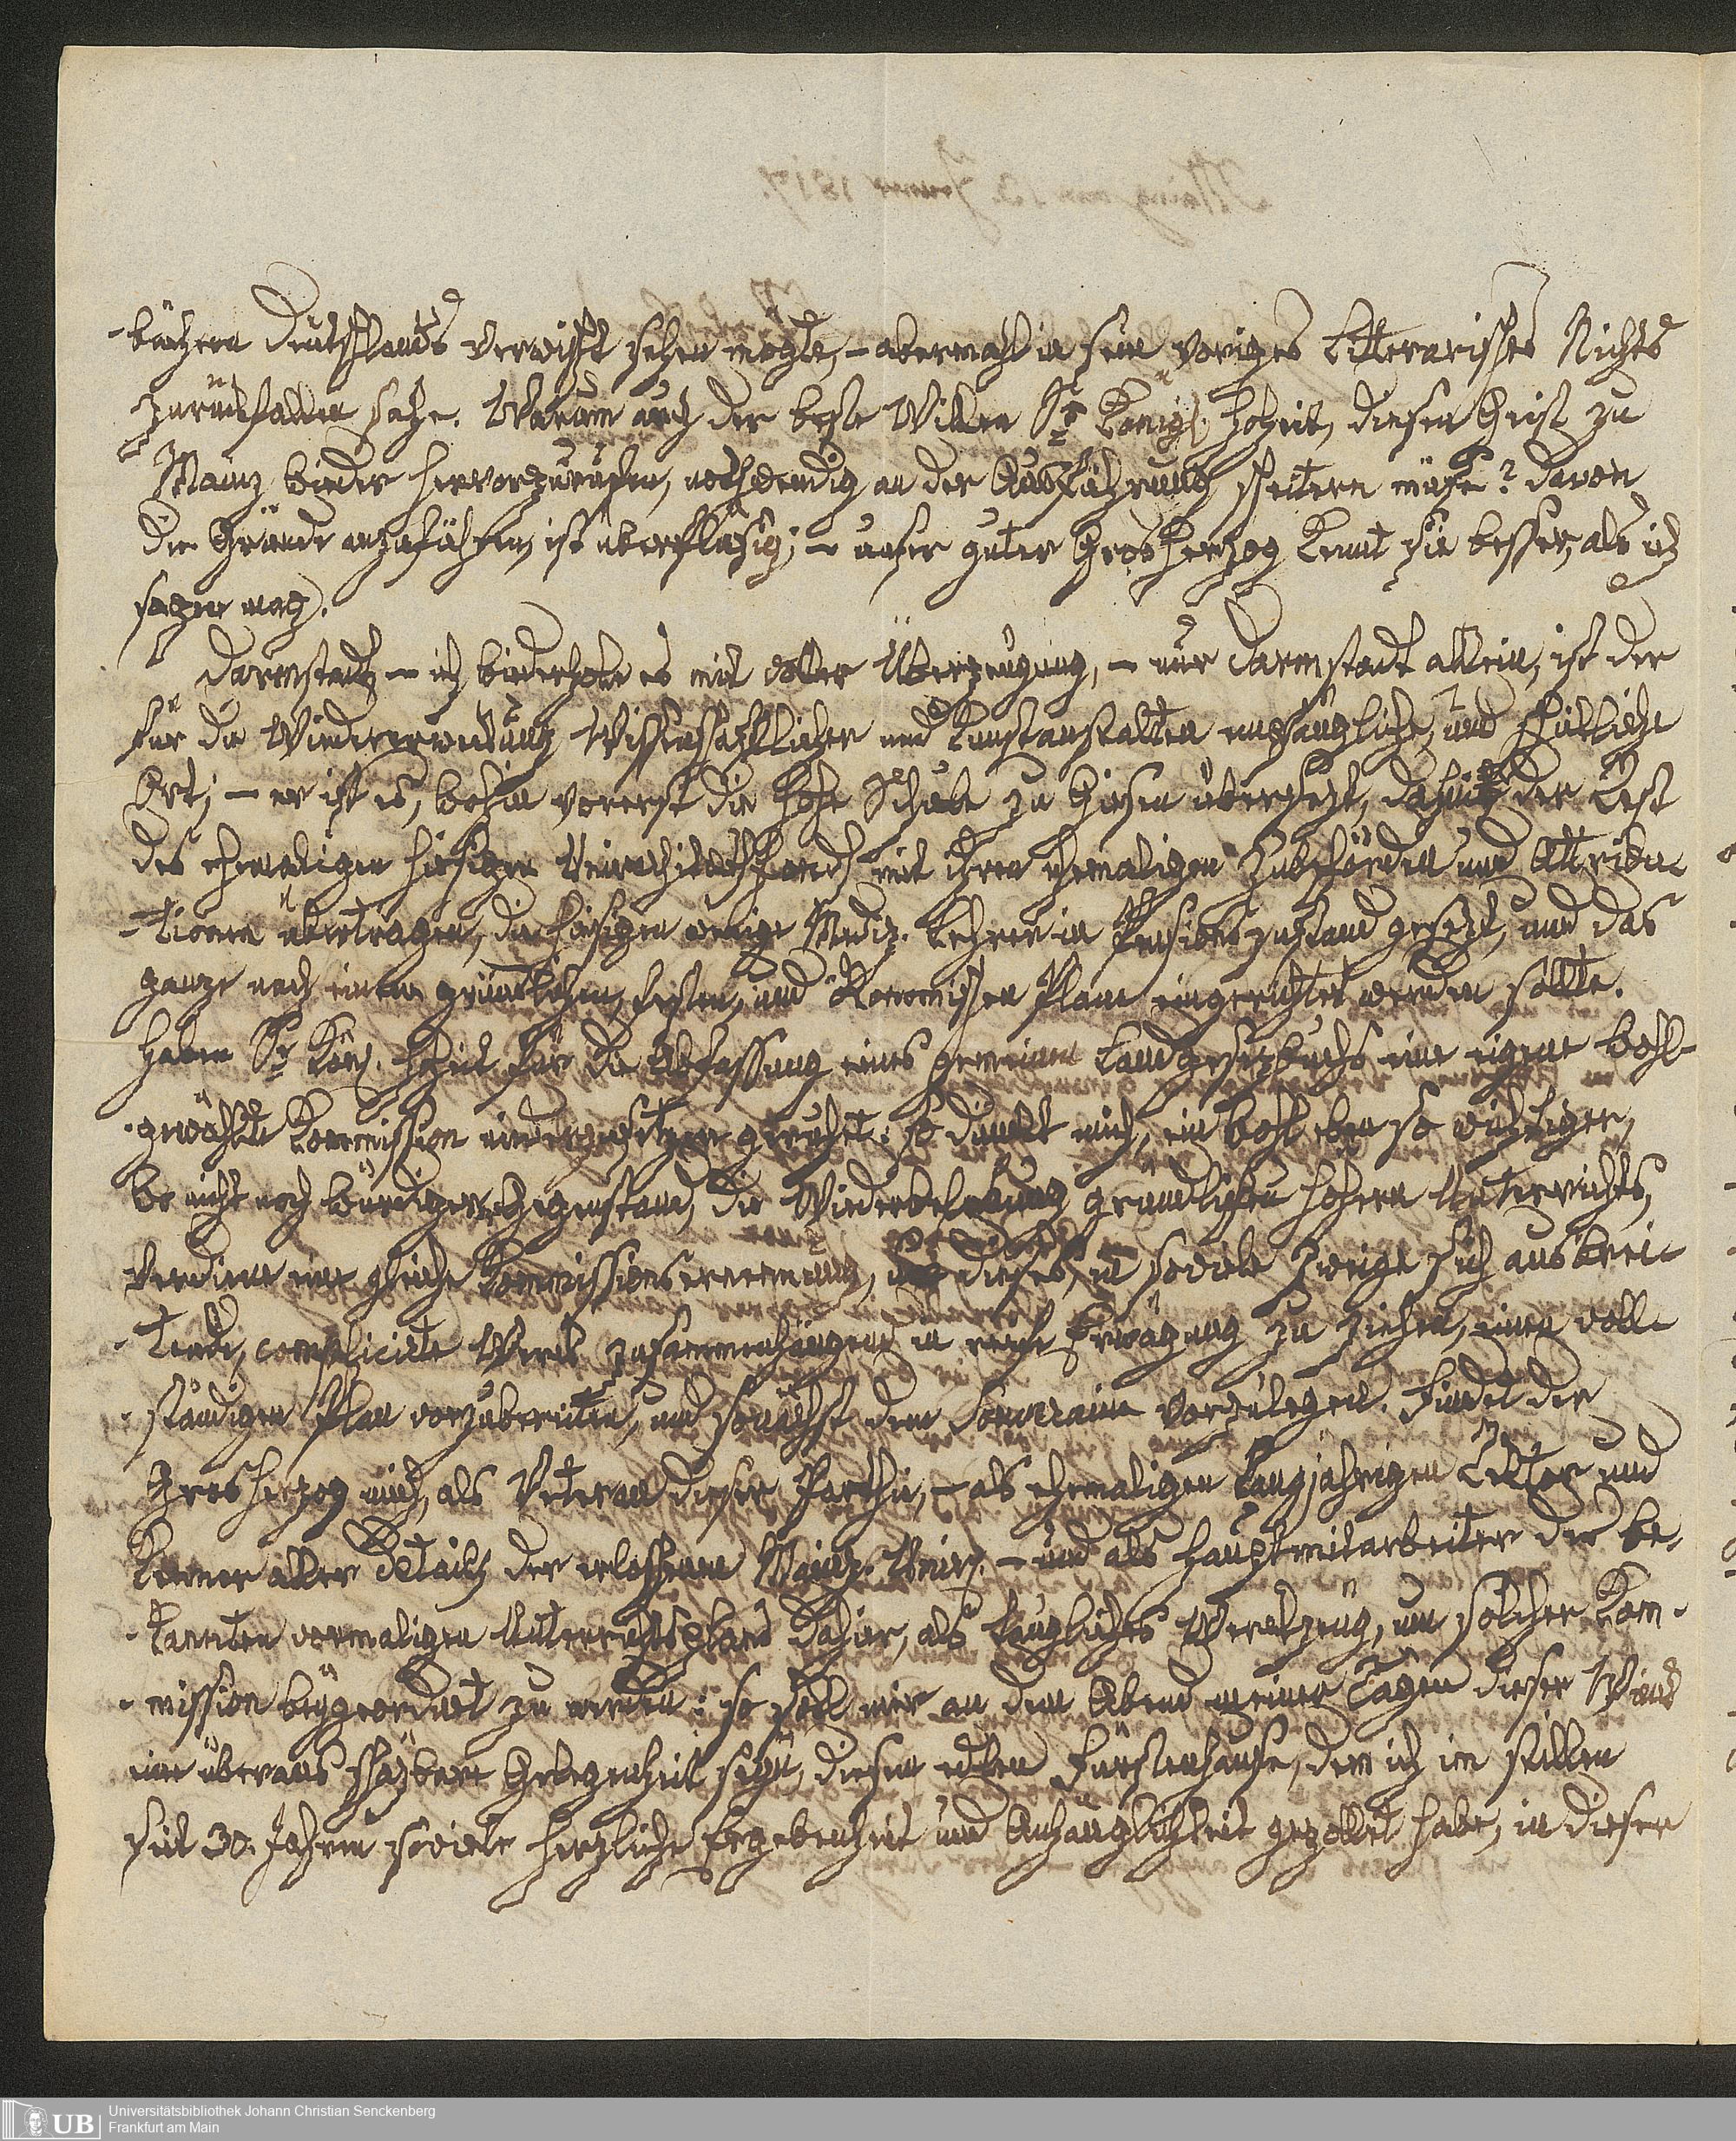 -büchern Deutschlands verwischt sehen mögte, – abermahl in sein voriges Litterarisches Nichts
zurückfallen sahe. Warum auch der beste Willen Sr Königl. Hoheit, diesen Geist zu
Mainz wieder hervorzurufen, nothwendig an der Ausführung scheitern müße? davon
die Gründe anzuführen, ist überflüßig; – unser guter Grosherzog kennt sie besser, als ich
sagen mag.
Darmstadt, – ich wiederhole es mit voller Überzeugung, – nur Darmstadt allein, ist der
für die Wiedererweckung Wissenschaftlicher und Kunstanstalten empfängliche, und schickliche
Ort; – er ist es, wohin vorerst die hohe Schule zu Giesen übersezt, dahin der Rest
des ehemaligen hiesigen Universitätsfonds mit ihren ehemaligen Zubehörden und Attribu-
-tionen übertragen, die hiesigen wenige Mediz. Lehrer in Pensionszustand gesezt, und das
ganze nach einem gründlichen, festen, und ökonomischen Plane eingerichtet werden sollte.
Haben Sr Kön. Hoheit für die Abfassung eines gemeinen Landgesetzbuchs eine eigene wohl-
-gewählte Kommission niederzusetzen geruhet: so dünkt mich, ein wohl eben so wichtiger,
wo nicht noch würdigerer Gegenstand, die Wiederbelebung gründlichen höhern Unterrichts,
verdiene eine gleiche Kommissionsernennung, dieses, in soviele Zweige sich ausbrei-
-tende, complicirte Werk zusammenhängend in reife Erwägung zu ziehen, einen voll-
-ständigen Plan vorzubereiten, und sonächst dem Souveraine vorzulegen. Findet der
Grosherzog mich, als Veteran dieser Parthie, – als ehemaligen langjährigen Rektor und
Kenner aller Details der erloschenen Mainz. Univ. – und als Hauptmitarbeiter der be-
-kannten vormaligen Unterrichtsplans dahier, als taugliches Werkzeug, um solcher Kom-
-mission beygeordnet zu werden: so soll mir an dem Abend meiner Tagen dieser Wink
eine überaus schäzbare Gelegenheit seyn, diesem edlen Fürstenhause, dem ich im stillen
seit 30. Jahren soviele herzliche Ergebenheit und Anhänglichkeit gezollet habe, in dieser
Mainz am 13. Jenner 1817.
UB
Universitätsbibliothek Johann Christian Senckenberg
Frankfurt am Main